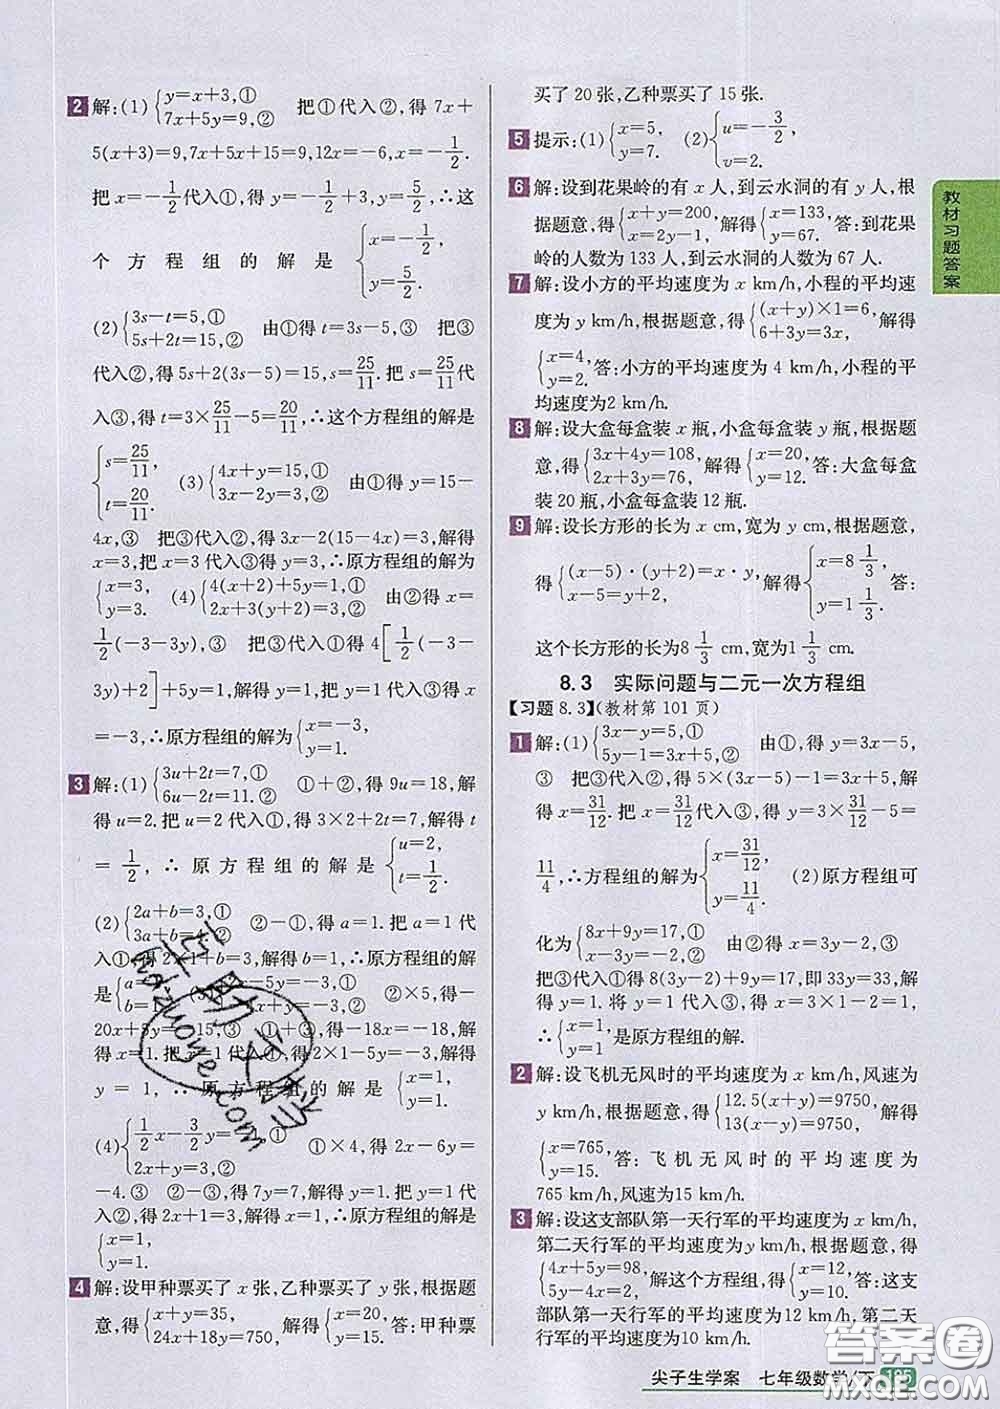 2 解:(1){y=x+3,① 7x+5y=9,② 把①代入②,得 7x+
5(x+3)=9,7x+5x+15=9,12x=-6,x=-1/2.
把 x=-1/2代入①,得 y=-1/2+3,y=5/2,∴这
个方程组的解是{x=-1/2, y=5/2.
(2){3s-t=5,① 5s+2t=15,② 由①得 t=3s-5,③ 把③
代入②,得 5s+2(3s-5)=15,s=25/11.把 s=25/11代
入③,得 t=3×25/11-5=20/11,∴这个方程组的解是
{s=25/11, t=20/11. (3){4x+y=15,① 3x-2y=3,② 由①得 y=15-
4x,③ 把③代入②,得 3x-2(15-4x)=3,解得
x=3,把 x=3代入③得 y=3,∴原方程组的解为
{x=3, y=3. (4){4(x+2)+5y=1,① 2x+3(y+2)=3,② 由②得 x=
1/2(-3-3y),③ 把③代入①得 4[1/2(-3-
3y)+2]+5y=1,解得 y=1,把 y=1 代入③得 x
=-3,∴原方程组的解为{x=-3, y=1.
3 解:(1){3u+2t=7,① 6u-2t=11.② ①+②,得 9u=18,解
得 u=2.把 u=2 代入①,得 3×2+2t=7,解得 t
=1/2,∴原方程组的解是{u=2, t=1/2.
(2){2a+b=3,① 3a+b=4.② ②-①,得 a=1.把 a=1 代
入①,得 2×1+b=3,解得 b=1,∴原方程组的解
是{a=1, b=1. (3){2x-5y=-3,① ②×5,得-
20x+5y=-15,③ ①+③,得-18x=-18,解
得 x=1.把 x=1代入①,得2×1-5y=-3,解得
y=1,∴原方程组的解是{x=1, y=1.
(4){1/2x-3/2y=-1,① 2x+y=3,② ①×4,得 2x-6y=
-4.③ ②-③,得 7y=7,解得 y=1.把 y=1代
入②,得 2x+1=3,解得 x=1.∴原方程组的解是
{x=1, y=1.
4 解:设甲种票买了 x 张,乙种票买了 y 张,根据题
意,得{x+y=35, 24x+18y=750, 解得{x=20, y=15. 答:甲种票
买了 20 张,乙种票买了 15 张.
5 提示:(1){x=5, y=7. (2){u=-3/2, v=2.
6 解:设到花果岭的有 x 人,到云水洞的有 y 人,根
据题意,得{x+y=200, x=2y-1, 解得{x=133, y=67. 答:到花果
岭的人数为 133 人,到云水洞的人数为 67 人.
7 解:设小方的平均速度为 x km/h,小程的平均速
度为 y km/h,根据题意,得{(x+y)×1=6, 6+3y=3x, 解得
{x=4, y=2. 答:小方的平均速度为 4 km/h,小程的平
均速度为2 km/h.
8 解:设大盒每盒装 x 瓶,小盒每盒装 y 瓶,根据题
意,得{3x+4y=108, 2x+3y=76, 解得{x=20, y=12. 答:大盒每盒
装 20 瓶,小盒每盒装 12 瓶.
9 解:设长方形的长为 x cm,宽为 y cm,根据题意,
得{(x-5)·(y+2)=x·y, x-5=y+2, 解得{x=8 1/3, y=1 1/3. 答:
这个长方形的长为8 1/3 cm,宽为1 1/3 cm.
8.3 实际问题与二元一次方程组
【习题 8.3】(教材第 101 页)
1 解:(1){3x-y=5,① 5y-1=3x+5,② 由①,得 y=3x-5,
③ 把③代入②,得 5×(3x-5)-1=3x+5,解
得 x=31/12.把 x=31/12代入③,得 y=3×31/12-5=
11/4,∴方程组的解为{x=31/12, y=11/4. (2)原方程组可
化为{8x+9y=17,① x-3y=-2.② 由②得 x=3y-2,③
把③代入①得 8(3y-2)+9y=17,即 33y=33,解
得 y=1.将 y=1 代入③,得 x=3×1-2=1,
∴{x=1, y=1 是原方程组的解.
2 解:设飞机无风时的平均速度为 x km/h,风速为
y km/h,根据题意,得{12.5(x+y)=9750, 13(x-y)=9750, 解得
{x=765, y=15. 答:飞机无风时的平均速度为
765 km/h,风速为15 km/h.
3 解:设这支部队第一天行军的平均速度为 x km/h,
第二天行军的平均速度为y km/h,根据题意,得
{4x+5y=98, 5y=4x+2, 解这个方程组,得{x=12, y=10. 答:这支
部队第一天行军的平均速度为12 km/h,第二天
行军的平均速度为10 km/h.
教材习题答案
尖子生学案 七年级数学/下 185
答案圈